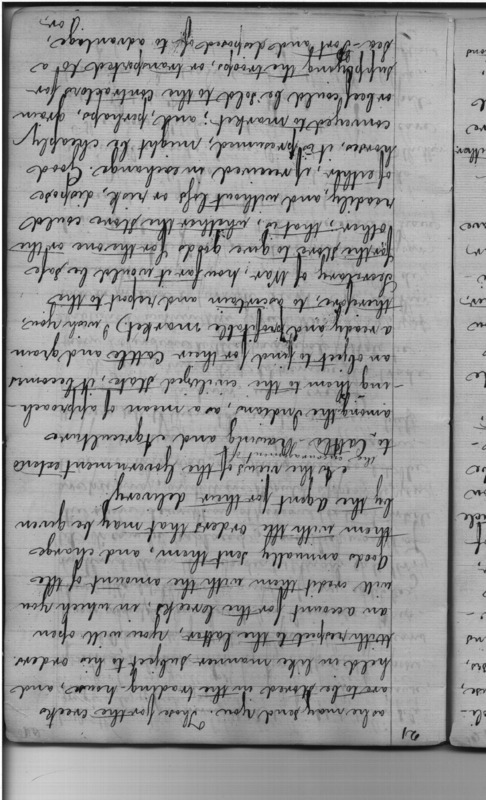 21
as he may send you. Those for the Creeks
are to be stored in the trading-house, and
held in like manner subject to his orders.
With respect to the latter, you will open
an account for the Creeks; in which you
will credit them with the amount of the
Goods annually sent them, and charge
them with the orders that may be given
by the Agent for their delivery.
As the views of the Government extends
the encouragement of
to Cattle-Raising and Agriculture
among the Indians, as a mean of approach-
-ing them to the civilized state, it becomes
an object to find for their Cattle and grain
a ready and profitable market; I wish you,
therefore, to ascertain and report to the
Secretary of War, how far it would be safe
for the Store to give goods for the one or the
other; that is, whether the store could
readily, and without loss or risk, dispose
of either, if received in exchange. Good
horses, it is presumed, might be cheaply
conveyed to market; and, perhaps, grain
or beef could be sold to the Contractors for
supplying the troops, or transported to a
sea-port and disposed of to advantage,
or,